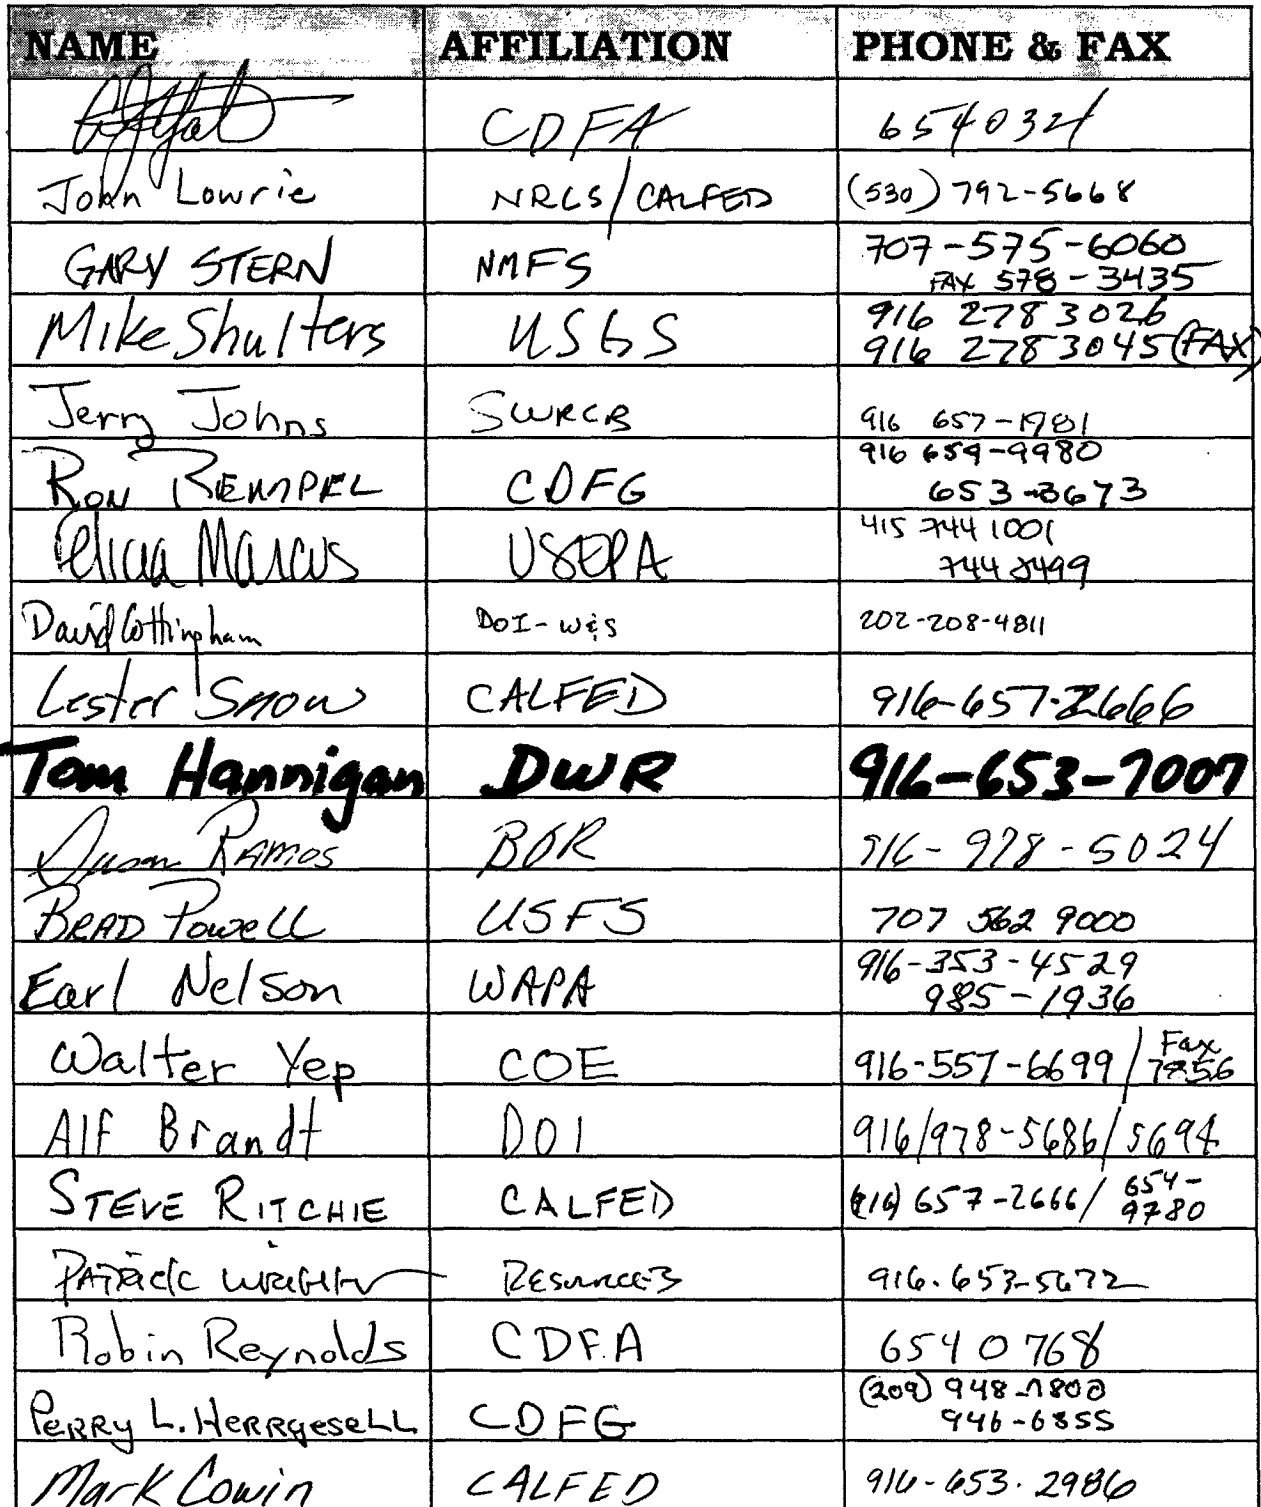 NAME AFFILIATION PHONE & FAX
CDFA
John Lowrie NRCS/CALFED (530) 792-5668
GARY STERN NMFS 707-575-6060
FAX 578-3435
Mike Shulters USGS 916 278 3026
916 278 3045 (FAX)
Jerry Johns SWRCB 916 657-1981
Ron REMPEL CDFG 916 654-9980
653-3673
Felicia Marcus USEPA 415 744 1001
744 2499
David Cottingham DOI-W&S 202-208-4811
Lester Snow CALFED 916-657-2666
Tom Hannigan DWR 916-653-7007
Susan RAMOS BOR 916-978-5024
BRAD POWELL USFS 707 562 9000
Earl Nelson WAPA 916-353-4529
985-1936
Walter Yep COE 916-557-6699/Fax
7856
Alf Brandt DOI 916/978-5686/5694
STEVE RITCHIE CALFED (916) 657-2666/654-
9780
PATRICK WRIGHT RESOURCES 916.653-5672
Robin Reynolds CDFA 654 0768
PERRY L. HERRGESELL CDFG (209) 948-7800
946-6355
Mark Cowin CALFED 916-653.2986